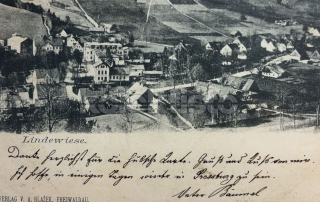 Lindewiese.
Danke herzlichst für die hübsche Karte. Gruß und Kuß von mir.
Ich hoffe in einigen Tagen wieder in Pressburg zu sein.
Vater Samuel
VERLAG V. A. BLAŽEK, FREIWALDAU.